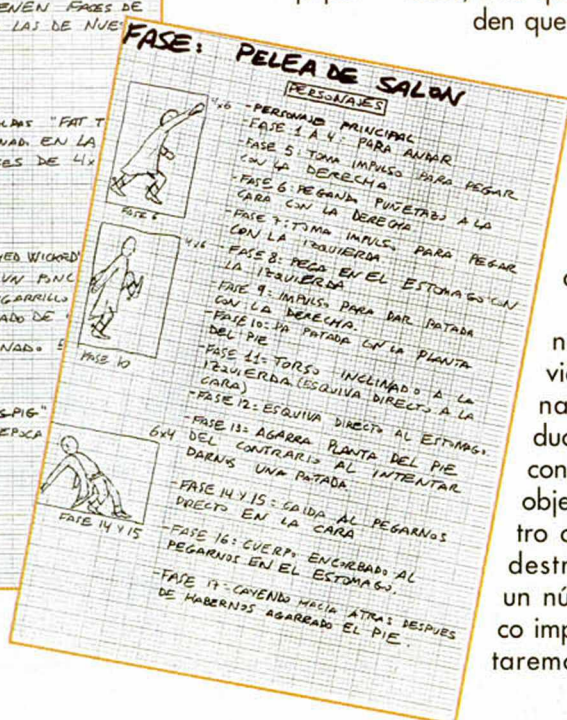 ENEN FASES DE
LAS DE NUES
LDAS "FAT T
NADO EN LA
ES DE 4x
YED WICKED"
UN PONC
GARRILLO
ADO DE
NADO E
S PIG"
EPOCA
den que
FASE: PELEA DE SALON
PERSONAJES
4x6
- PERSONAJE PRINCIPAL
- FASE 1 A 4: PARA ANDAR
- FASE 5: TOMA IMPULSO PARA PEGAR
CON LA DERECHA
- FASE 6: PEGANDO PUÑETAZO A LA
CARA CON LA DERECHA
- FASE 7: TOMA IMPULSO PARA PEGAR
CON LA IZQUIERDA
- FASE 8: PEGA EN EL ESTOMAGO CON
LA IZQUIERDA
- FASE 9: IMPULSO PARA DAR PATADA
CON LA DERECHA.
- FASE 10: DA PATADA CON LA PLANTA
DEL PIE
- FASE 11: TORSO INCLINADO A LA
IZQUIERDA (ESQUIVA DIRECTO A LA
CARA)
- FASE 12: ESQUIVA DIRECTO AL ESTOMAGO.
- FASE 13: AGARRA PLANTA DEL PIE
DEL CONTRARIO AL INTENTAR
DARNOS UNA PATADA
- FASE 14 Y 15: CAIDA AL PEGARNOS
DIRECTO EN LA CARA
- FASE 16: CUERPO ENCORBADO AL
PEGARNOS EN EL ESTOMAGO.
- FASE 17: CAYENDO HACIA ATRAS DESPUES
DE HABERNOS AGARRADO EL PIE.
FASE 6
4x6
FASE 10
6x4
FASE 14 Y 15
n
vi
na
duc
con
obje
tro c
destr
un nú
co imp
taremo